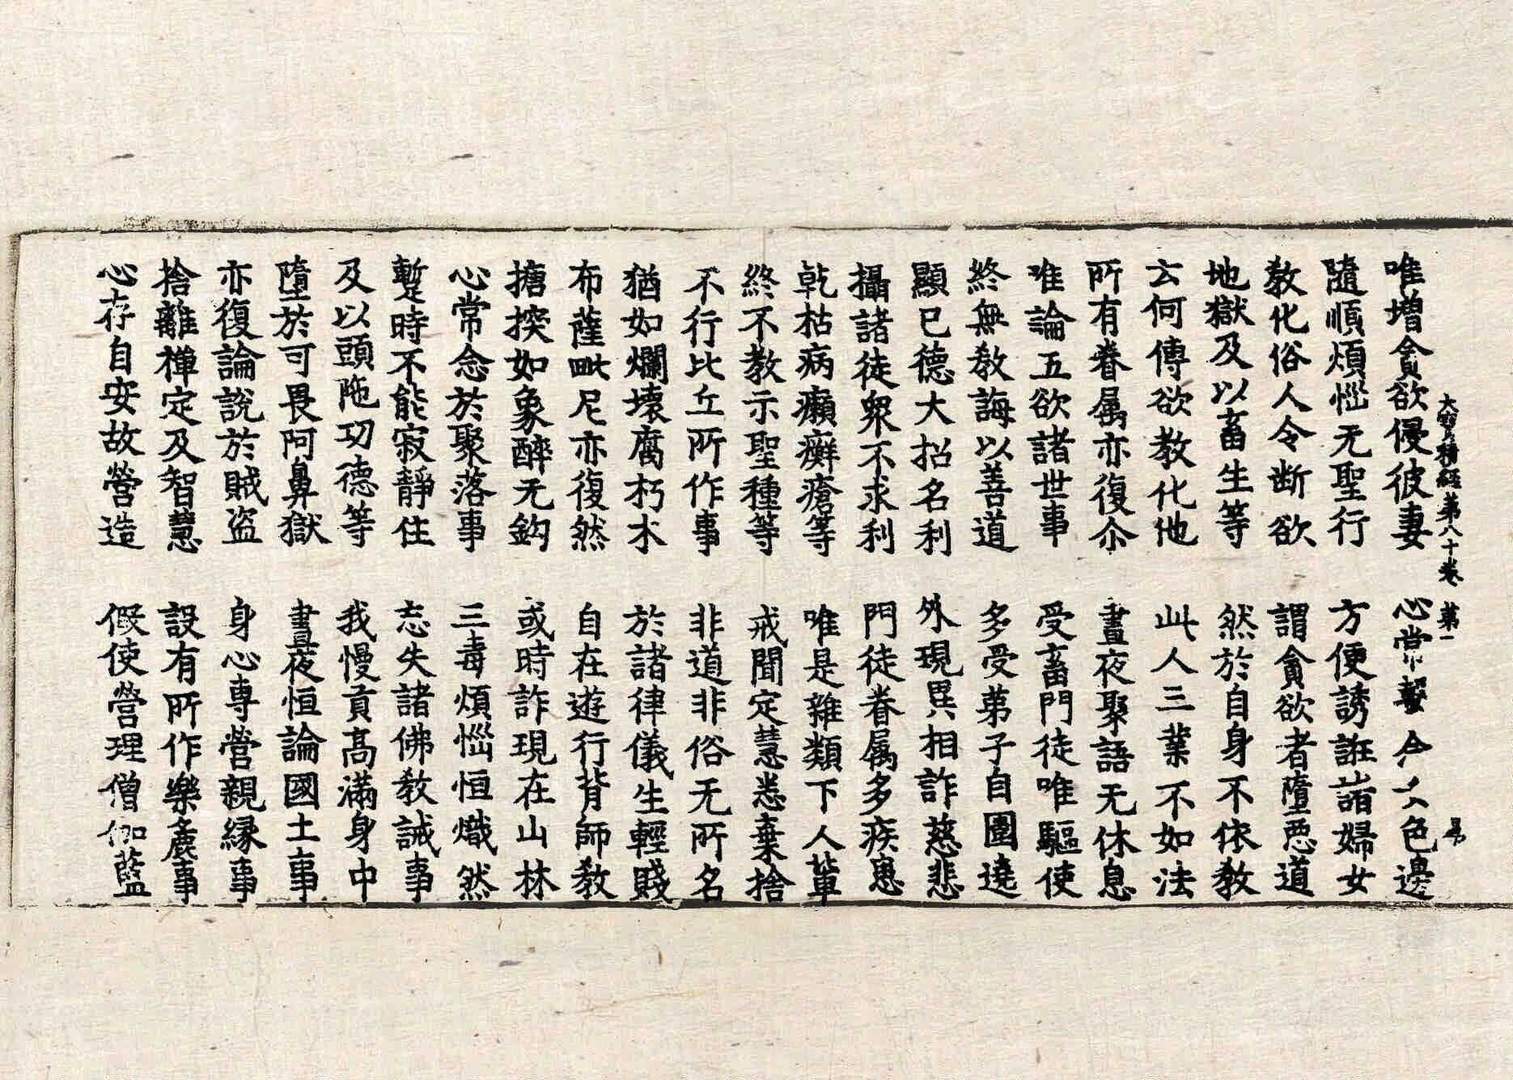 大寶積經第八十卷 第一
唯增貪欲侵彼妻 心常色邊
隨順煩惱无聖行 方便誘誑諸婦女
教化俗人令断欲 謂貪欲者墮惡道
地獄及以畜生等 然於自身不依教
云何傳欲教化他 此人三業不如法
所有眷属亦復尒 晝夜聚語无休息
唯論五欲諸世事 受畜門徒唯驅使
終無教誨以善道 多受弟子自圍遶
顯已德大招名利 外現異相詐慈悲
攝諸徒衆不求利 門徒眷属多疾患
乾枯病癩癬瘡等 唯是雜類下人軰
終不教示聖種等 戒聞定慧悉棄捨
不行比丘所作事 非道非俗无所名
猶如爛壞腐朽木 於諸律儀生輕賤
布薩毗尼亦復然 自在遊行背師教
搪揬如象醉无鈎 或時詐現在山林
心常念於聚落事 三毒煩惱恒熾然
暫時不能寂靜住 忘失諸佛教誡事
及以頭陁功德等 我慢貢高滿身中
墮於可畏阿鼻獄 晝夜恒論國土事
亦復論說於賊盗 身心專營親縁事
捨離禅定及智慧 設有所作樂廣事
心存自安故營造 假使營理僧伽藍